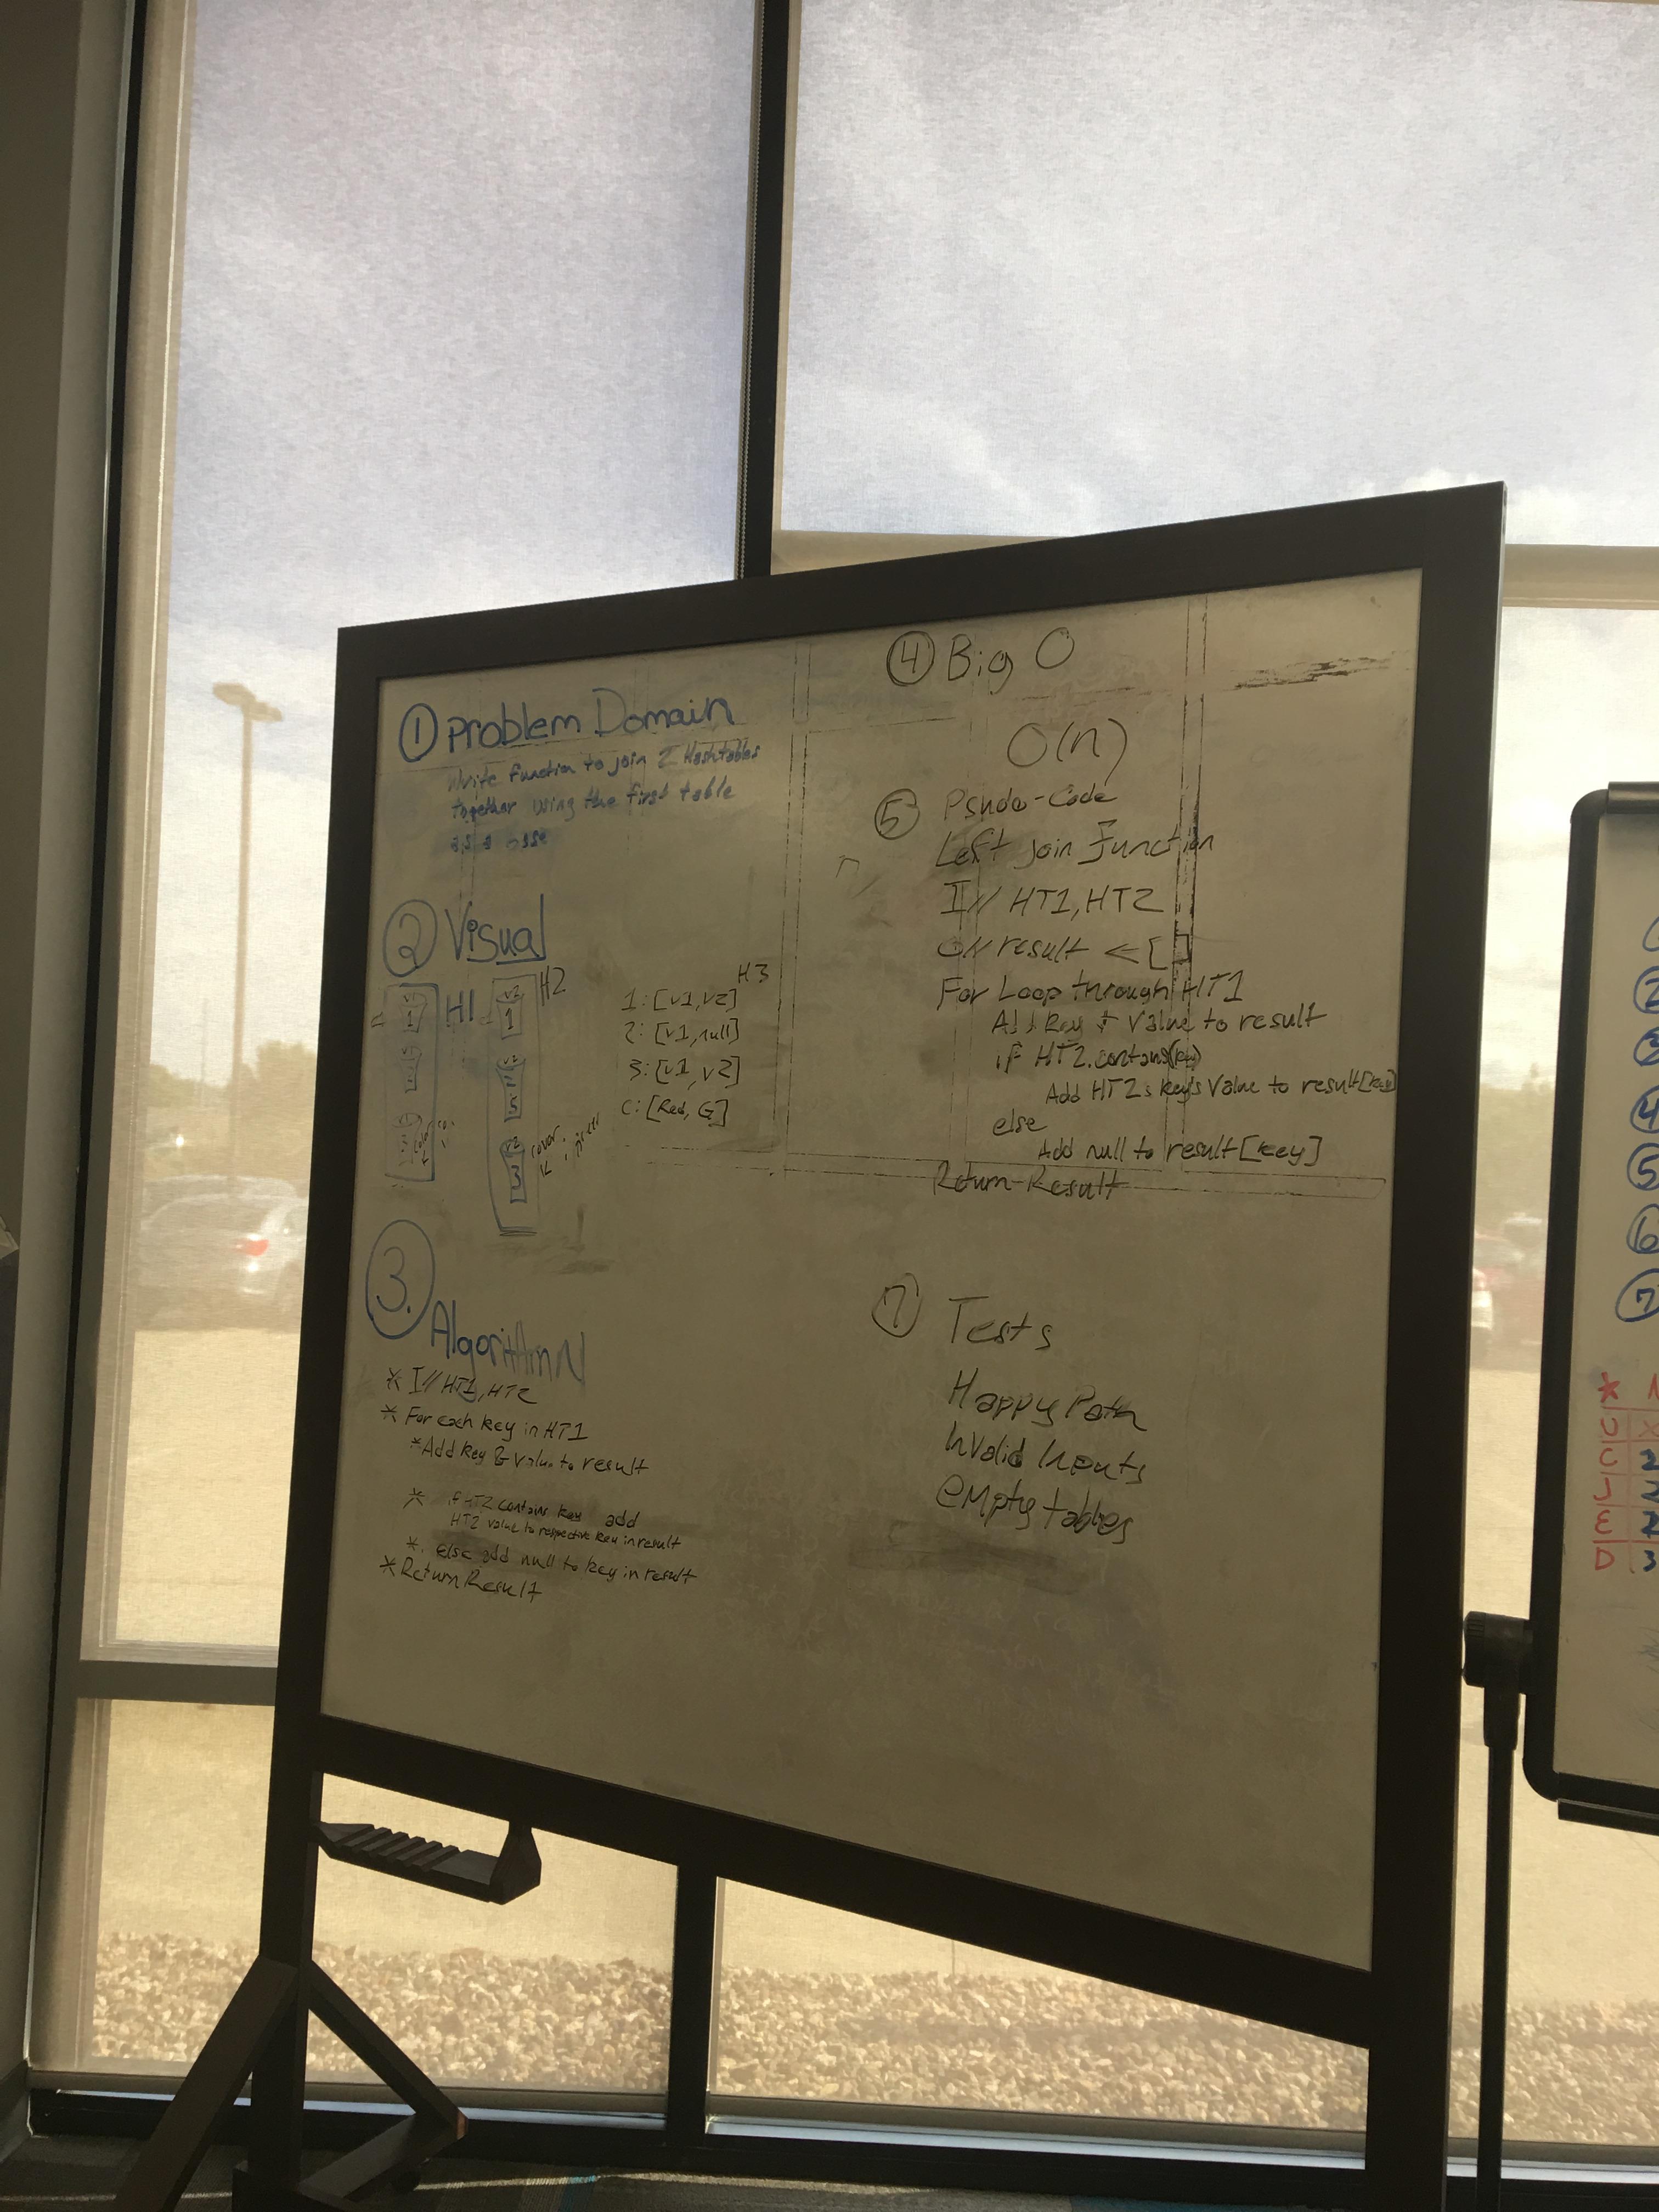 ① Problem Domain
Write function to join 2 Hashtables
together using the first table
as a
② Visual
H1
H2
v2
1
v2
5
v2
3
H3
1: [v1, v2]
2: [v1, null]
3: [v1, v2]
C: [Red, G]
3. Algorithm
* I// HT1, HT2
* For each key in HT1
* Add key & value to result
* if HT2 contains key add
HT2 value to respective key in result
* else add null to key in result
* Return Result
④ Big O
O(n)
⑤ Psudo-Code
Left join Function
I// HT1, HT2
O// result <- []
For Loop through HT1
Add Key & Value to result
if HT2.contans(key)
Add HT2s key's Value to result[key]
else
Add null to result[key]
Return Result
⑦ Tests
Happy Path
Invalid Inputs
empty tables
②
③
④
⑤
⑥
⑦